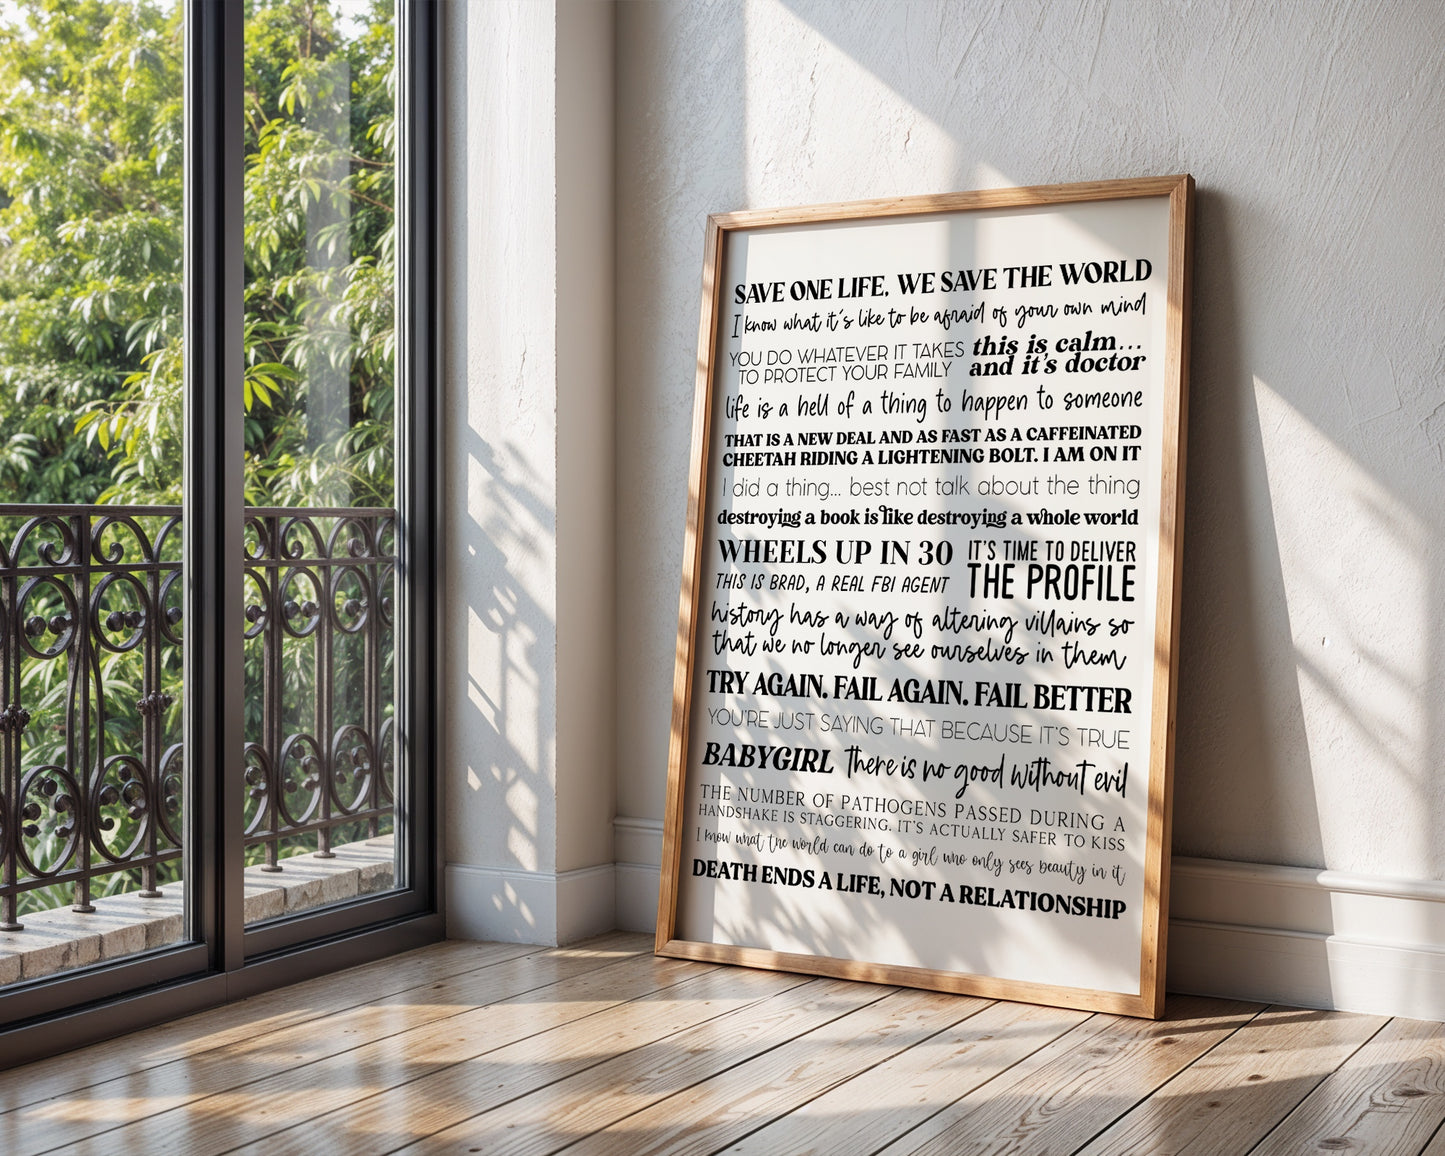 SAVE ONE LIFE, WE SAVE THE WORLD
I know what it's like to be afraid of your own mind
YOU DO WHATEVER IT TAKES
TO PROTECT YOUR FAMILY
this is calm...
and it's doctor
life is a hell of a thing to happen to someone
THAT IS A NEW DEAL AND AS FAST AS A CAFFEINATED
CHEETAH RIDING A LIGHTENING BOLT. I AM ON IT
I did a thing... best not talk about the thing
destroying a book is like destroying a whole world
WHEELS UP IN 30
THIS IS BRAD, A REAL FBI AGENT
IT'S TIME TO DELIVER
THE PROFILE
history has a way of altering villains so
that we no longer see ourselves in them
TRY AGAIN. FAIL AGAIN. FAIL BETTER
YOU'RE JUST SAYING THAT BECAUSE IT'S TRUE
BABYGIRL there is no good without evil
THE NUMBER OF PATHOGENS PASSED DURING A
HANDSHAKE IS STAGGERING. IT'S ACTUALLY SAFER TO KISS
I know what the world can do to a girl who only sees beauty in it
DEATH ENDS A LIFE, NOT A RELATIONSHIP